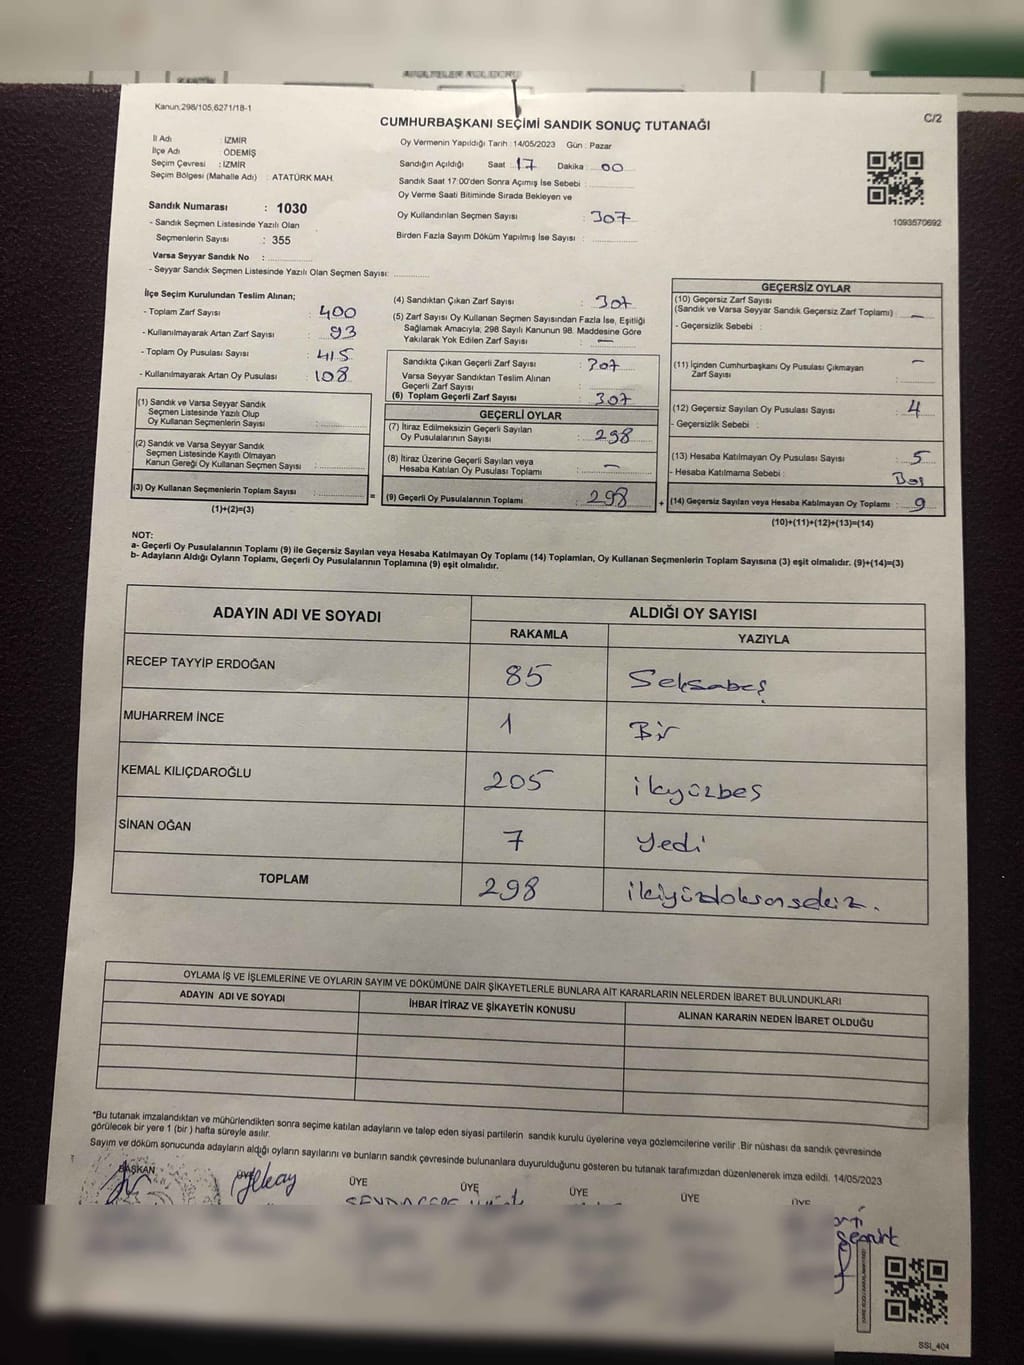 Kanun:298/105,6271/18-1
C/2
CUMHURBAŞKANI SEÇİMİ SANDIK SONUÇ TUTANAĞI
İl Adı : İZMİR
İlçe Adı : ÖDEMİŞ
Seçim Çevresi : İZMİR
Seçim Bölgesi (Mahalle Adı) : ATATÜRK MAH.
Sandık Numarası : 1030
- Sandık Seçmen Listesinde Yazılı Olan
Seçmenlerin Sayısı : 355
Varsa Seyyar Sandık No :
- Seyyar Sandık Seçmen Listesinde Yazılı Olan Seçmen Sayısı:
Oy Vermenin Yapıldığı Tarih : 14/05/2023 Gün : Pazar
Sandığın Açıldığı Saat : 17 Dakika : 00
Sandık Saat 17:00'den Sonra Açımış İse Sebebi :
Oy Verme Saati Bitiminde Sırada Bekleyen ve
Oy Kullandırılan Seçmen Sayısı : 307
Birden Fazla Sayım Döküm Yapılmış İse Sayısı :
1093570692
İlçe Seçim Kurulundan Teslim Alınan;
- Toplam Zarf Sayısı : 400
- Kullanılmayarak Artan Zarf Sayısı : 93
- Toplam Oy Pusulası Sayısı : 415
- Kullanılmayarak Artan Oy Pusulası : 108
(1) Sandık ve Varsa Seyyar Sandık
Seçmen Listesinde Yazılı Olup
Oy Kullanan Seçmenlerin Sayısı :
(2) Sandık ve Varsa Seyyar Sandık
Seçmen Listesinde Kayıtlı Olmayan
Kanun Gereği Oy Kullanan Seçmen Sayısı :
(3) Oy Kullanan Seçmenlerin Toplam Sayısı :
(1)+(2)=(3)
(4) Sandıktan Çıkan Zarf Sayısı : 307
(5) Zarf Sayısı Oy Kullanan Seçmen Sayısından Fazla İse, Eşitliği
Sağlamak Amacıyla, 298 Sayılı Kanunun 98. Maddesine Göre
Yakılarak Yok Edilen Zarf Sayısı : —
Sandıkta Çıkan Geçerli Zarf Sayısı : 307
Varsa Seyyar Sandıktan Teslim Alınan
Geçerli Zarf Sayısı :
(6) Toplam Geçerli Zarf Sayısı : 307
GEÇERLİ OYLAR
(7) İtiraz Edilmeksizin Geçerli Sayılan
Oy Pusulalarının Sayısı : 298
(8) İtiraz Üzerine Geçerli Sayılan veya
Hesaba Katılan Oy Pusulası Toplamı : —
= (9) Geçerli Oy Pusulalarının Toplamı : 298 +
GEÇERSİZ OYLAR
(10) Geçersiz Zarf Sayısı
(Sandık ve Varsa Seyyar Sandık Geçersiz Zarf Toplamı) : —
- Geçersizlik Sebebi :
(11) İçinden Cumhurbaşkanı Oy Pusulası Çıkmayan
Zarf Sayısı : —
(12) Geçersiz Sayılan Oy Pusulası Sayısı : 4
- Geçersizlik Sebebi :
(13) Hesaba Katılmayan Oy Pusulası Sayısı : 5
- Hesaba Katılmama Sebebi : Boş
(14) Geçersiz Sayılan veya Hesaba Katılmayan Oy Toplamı : 9
(10)+(11)+(12)+(13)=(14)
NOT:
a- Geçerli Oy Pusulalarının Toplamı (9) ile Geçersiz Sayılan veya Hesaba Katılmayan Oy Toplamı (14) Toplamları, Oy Kullanan Seçmenlerin Toplam Sayısına (3) eşit olmalıdır. (9)+(14)=(3)
b- Adayların Aldığı Oyların Toplamı, Geçerli Oy Pusulalarının Toplamına (9) eşit olmalıdır.
ADAYIN ADI VE SOYADI
ALDIĞI OY SAYISI
RAKAMLA YAZIYLA
RECEP TAYYİP ERDOĞAN 85 Seksabeş
MUHARREM İNCE 1 Bir
KEMAL KILIÇDAROĞLU 205 ikyüzbeş
SİNAN OĞAN 7 Yedi
TOPLAM 298 ikiyüzdoksansekiz.
OYLAMA İŞ VE İŞLEMLERİNE VE OYLARIN SAYIM VE DÖKÜMÜNE DAİR ŞİKAYETLERLE BUNLARA AİT KARARLARIN NELERDEN İBARET BULUNDUKLARI
ADAYIN ADI VE SOYADI İHBAR İTİRAZ VE ŞİKAYETİN KONUSU ALINAN KARARIN NEDEN İBARET OLDUĞU
*Bu tutanak imzalandıktan ve mühürlendikten sonra seçime katılan adayların ve talep eden siyasi partilerin sandık kurulu üyelerine veya gözlemcilerine verilir .Bir nüshası da sandık çevresinde
görülecek bir yere 1 (bir ) hafta süreyle asılır.
Sayım ve döküm sonucunda adayların aldığı oyların sayılarını ve bunların sandık çevresinde bulunanlara duyurulduğunu gösteren bu tutanak tarafımızdan düzenlenerek imza edildi. 14/05/2023
BAŞKAN ÜYE ÜYE ÜYE ÜYE ÜYE ÜYE
SSİ_404